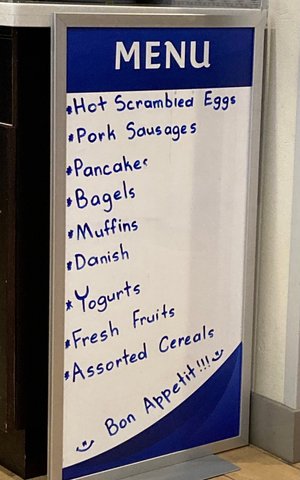 MENU
*Hot Scrambled Eggs
*Pork Sausages
*Pancakes
*Bagels
*Muffins
*Danish
*Yogurts
*Fresh Fruits
*Assorted Cereals
Bon Appetit!!!